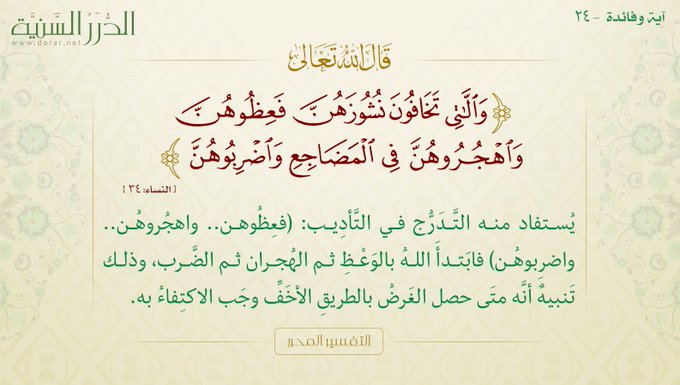 آية وفائدة - ٢٤
الدُّرَرُ السَّنِيَّة
www.dorar.net
قَالَ اللهُ تَعَالَى
﴿وَٱلَّٰتِي تَخَافُونَ نُشُوزَهُنَّ فَعِظُوهُنَّ
وَٱهۡجُرُوهُنَّ فِي ٱلۡمَضَاجِعِ وَٱضۡرِبُوهُنَّ﴾
[النساء: ٣٤]
يُستفاد منه التَّدَرُّج في التَّأديب: (فعِظُوهن.. واهجُروهُن..
واضرِبوهُن) فابَتدأَ اللهُ بالوَعْظِ ثم الهُجران ثم الضَّرب، وذلك
تَنبيهٌ أنَّه متَى حصل الغَرضُ بالطريقِ الأخَفِّ وجَب الاكتِفاءُ به.
التفسير المحرر